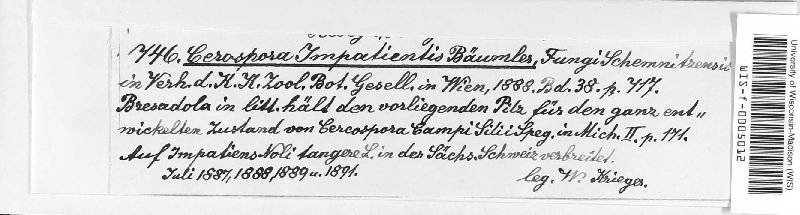 746. Cerospora Impatientis Bäumler, Fungi Schemnitzensis
in Verh. d. K. K. Zool. Bot. Gesell. in Wien, 1888. Bd. 38. p. 717.
Bresadola in litt. hält den vorliegenden Pilz für den ganz ent„
wickelten Zustand von Cercospora Campi Silii Speg. in Mich. II. p. 171.
Auf Impatiens Noli tangere L. in der Sächs. Schweiz verbreitet.
Juli 1887, 1888, 1889 u. 1891. leg. W. Krieger.
University of Wisconsin-Madison (WIS)
WIS-f-0005012